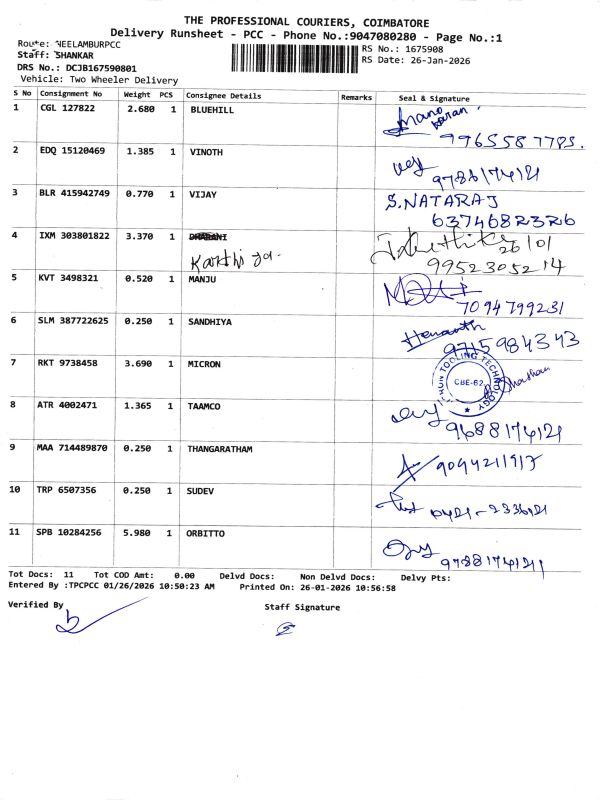 THE PROFESSIONAL COURIERS, COIMBATORE
Delivery Runsheet - PCC - Phone No.:9047080280 - Page No.:1
Route: NEELAMBURPCC
Staff: SHANKAR
DRS No.: DCJB167590801
Vehicle: Two Wheeler Delivery
RS No.: 1675908
RS Date: 26-Jan-2026
S No Consignment No Weight PCS Consignee Details Remarks Seal & Signature
1 CGL 127822 2.680 1 BLUEHILL
9965587785.
2 EDQ 15120469 1.385 1 VINOTH
3 BLR 415942749 0.770 1 VIJAY S.NATARAJ
6374682326
4 IXM 303801822 3.370 1 26/01
9952305214
5 KVT 3498321 0.520 1 MANJU
7094799231
6 SLM 387722625 0.250 1 SANDHIYA Hemanth
9715984343
7 RKT 9738458 3.690 1 MICRON TOOLING TECHNOLOGY CBE-62
8 ATR 4002471 1.365 1 TAAMCO
9688174121
9 MAA 714489870 0.250 1 THANGARATHAM
10 TRP 6507356 0.250 1 SUDEV
11 SPB 10284256 5.980 1 ORBITTO
Tot Docs: 11 Tot COD Amt: 0.00 Delvd Docs: Non Delvd Docs: Delvy Pts:
Entered By :TPCPCC 01/26/2026 10:50:23 AM Printed On: 26-01-2026 10:56:58
Verified By Staff Signature